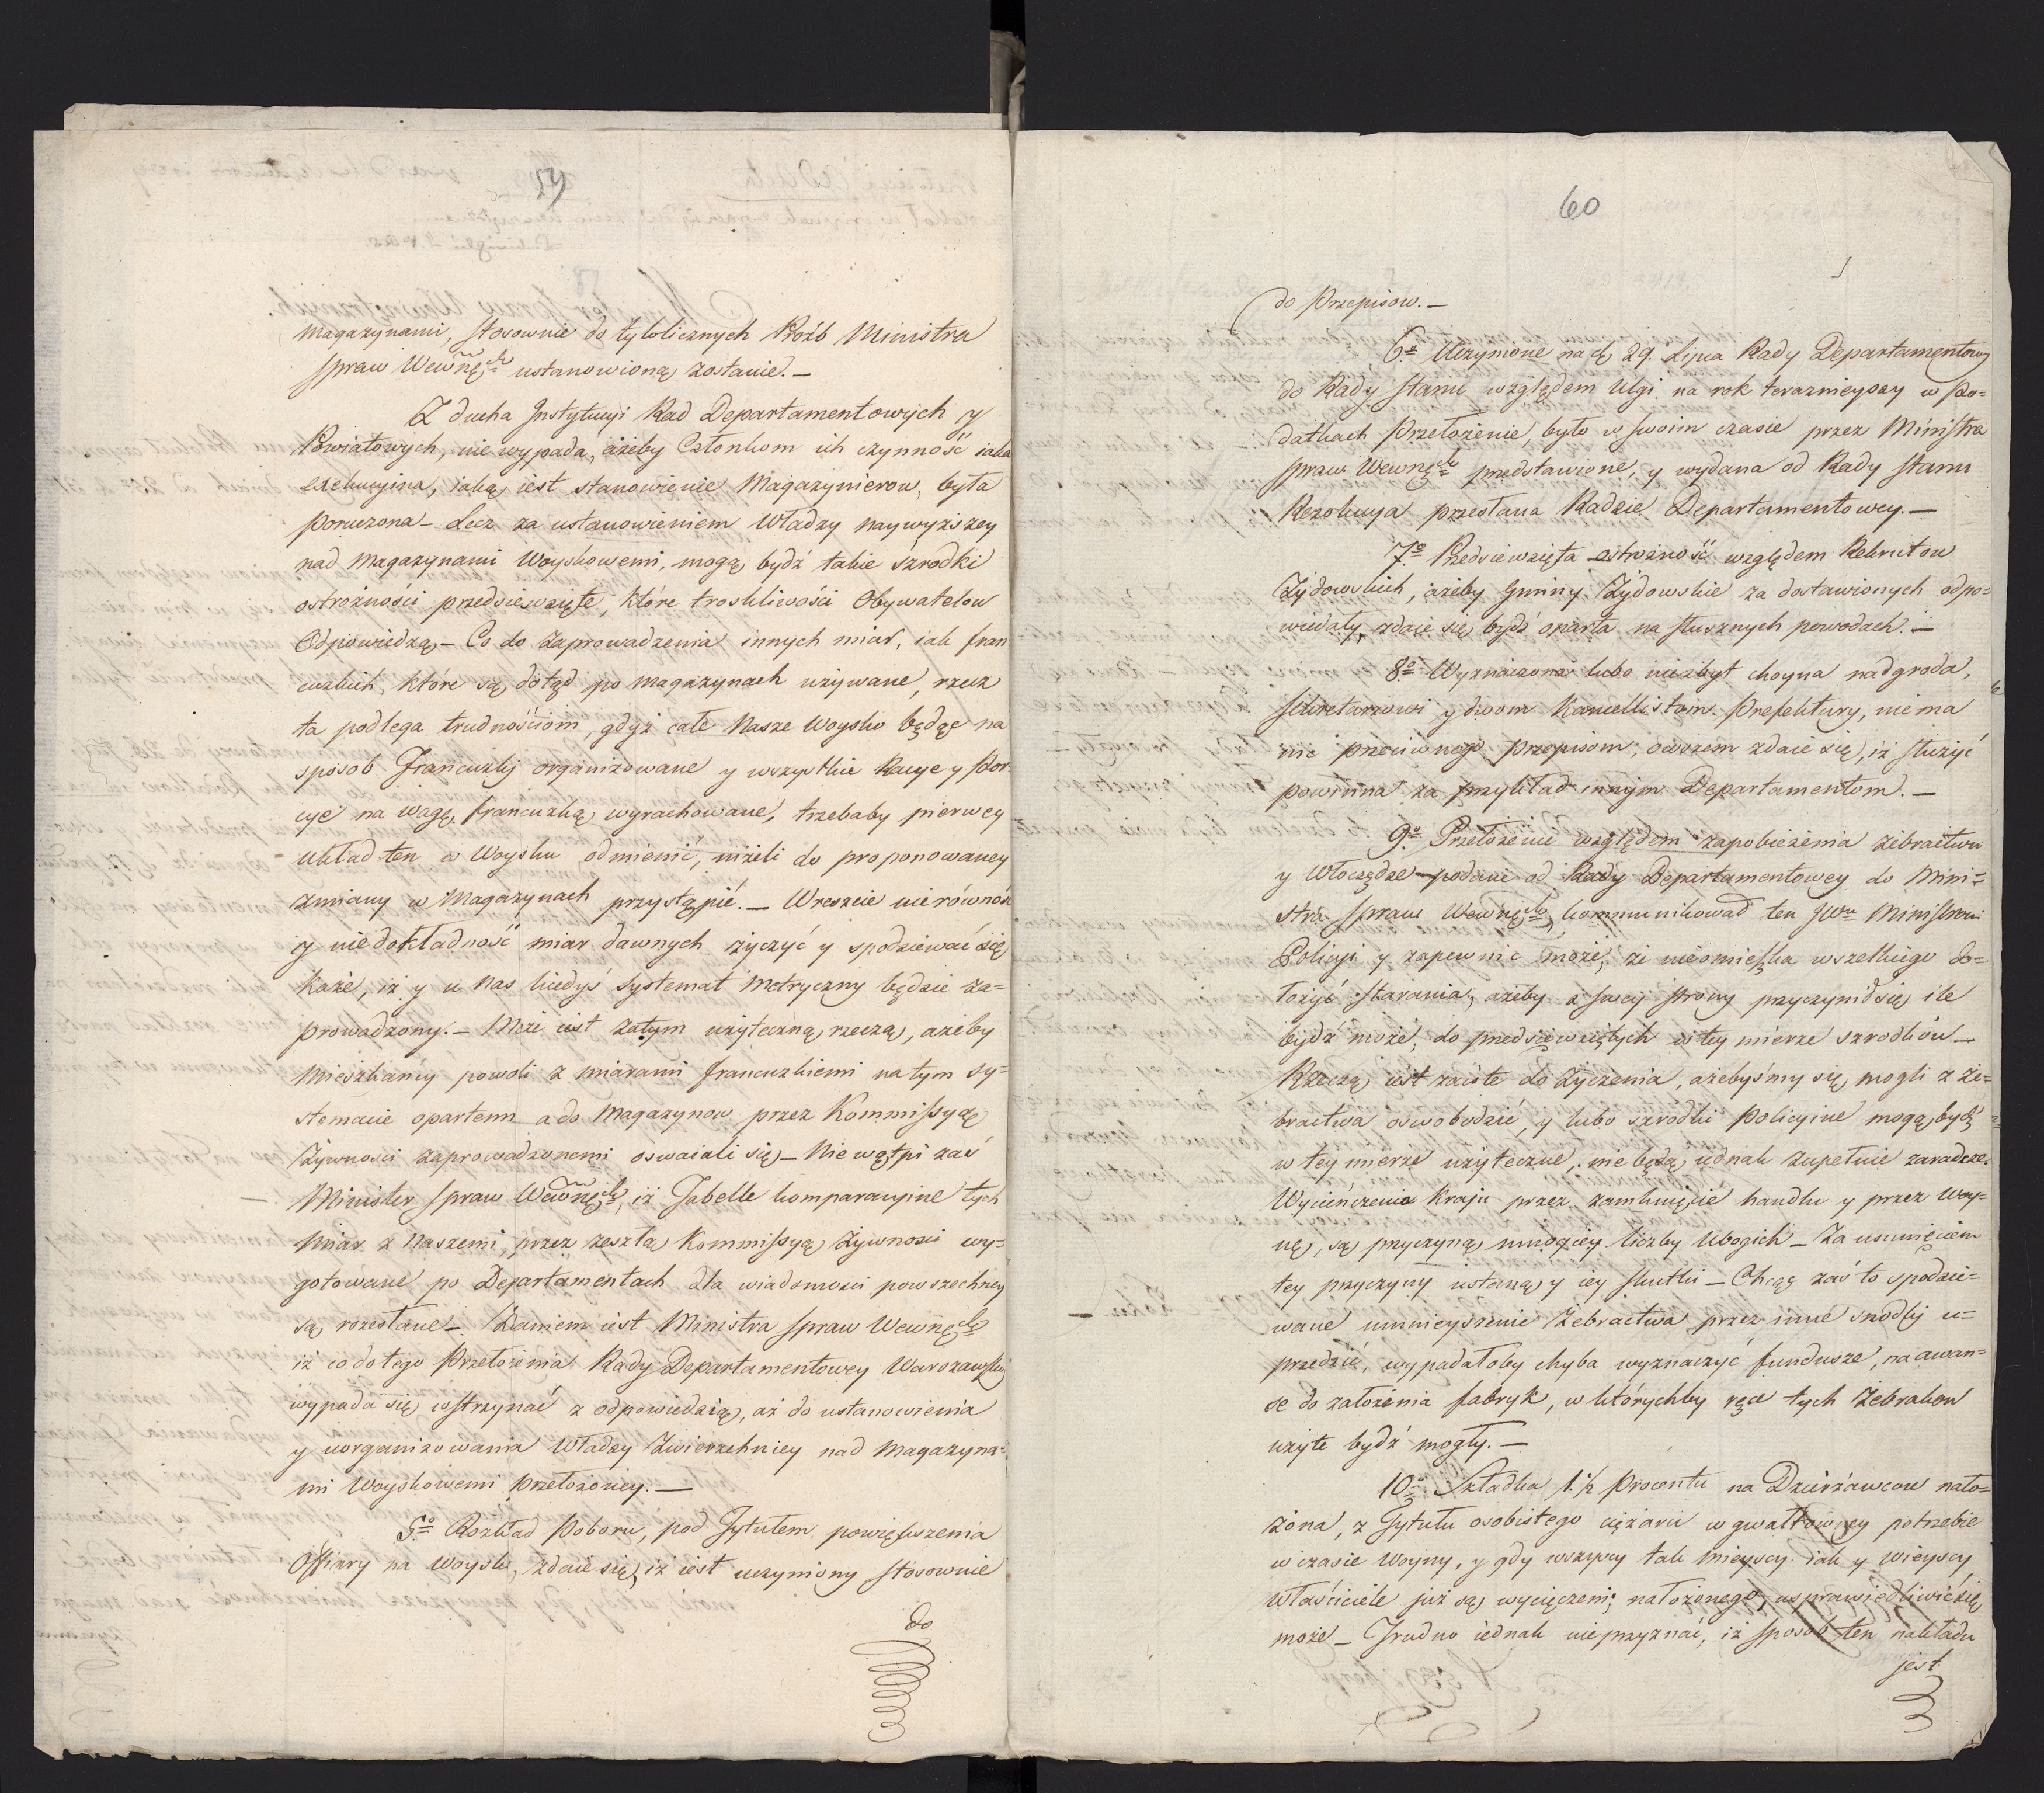 59
magazynami, stosownie do tylolicznych Próźb Ministra
spraw Wewnę͠ch ustanowioną zostanie. —
Z ducha Instytucyi Rad Departamentowych y
Powiatowych, nie wypada, ażeby Członkom ich czynność iaka
exekucyina, iaką iest stanowienie Magazynierow, była
poruczona — Lecz za ustanowieniem Władzy naywyższey
nad Magazynami Woyskowemi, mogą bydź takie szrodki
ostrożności przedsiewzięte, które troskliwości Obywatelow
Odpowiedzą — Co do zaprowadzenia innych miar, iak fran
cuzkich, które są dotąd po magazynach używane, rzecz
ta podlega trudnościom, gdyż całe Nasze Woysko będąc na
sposob Francuzky organizowane y wszystkie Racye y Por
cye na wagę francuzką wyrachowane, trzebaby pierwey
układ ten w Woysku odmienić, niżeli do proponowaney
zmiany w Magazynach przystąpić. — Wreszcie nierówność
y niedokładność miar dawnych życzyć y spodziewać się
każe, iż y u Nas kiedyś systemat metryczny będzie za=
prowadzony. — Może iest zatym użyteczną rzeczą, ażeby
Mieszkańcy powoli z miarami francuzkiemi na tym sy=
stemacie opartemi a do Magazynow przez Kommissyą
Żywnosci zaprowadzonemi oswaiali się — Nie wątpi zaś
Minister spraw Wewnę͠ch, iż Tabelle komparacyine tych
Miar z Naszemi, przez zeszłą Kommissyą Żywnosci wy=
gotowane po Departamentach dla wiadomosci powszechney
są rozesłane — Zdaniem iest Ministra spraw Wewnę͠ch
iż co do tego Przełożenia Rady Departamentowey Warszawskiey
wypada się wstrzynać z odpowiedzią, aż do ustanowienia
y uorganizowania Władzy Zwierzchniey nad Magazyna=
mi Woyskowemi przełożoney. —
5o Rozkład Poboru, pod Tytułem powiększenia
Offiary na Woysko, zdaie się, iż iest uczyniony stosownie
do
60
do Przepisow. —
6o Uczynione na dn 29. Lipca Rady Departamentowey
do Rady Stanu względem Ulgi na rok teraznieyszy w Po=
datkach Przełożenie, było w swoim czasie przez Ministra
spraw Wewnęch przedstawione, y wydana od Rady Stanu
Rezolucya przesłana Radzie Departamentowey. —
7o Przedsiewzięta ostrożność względem Rekrutow
Żydowskich, ażeby Gminy Żydowskie za dostawionych odpo=
wiedały, zdaie się bydź oparta na słusznych powodach. —
8o Wyznaczona lubo niezbyt choyna nadgroda,
Sekretarzowi y dwom Kancellistom Prefektury, niema
nic przeciwnego przepisom, owszem zdaie się, iż służyć
powinna za przykład innym Departamentom. —
9o Przełożenie względem zapobieżenia żebractwu
y Włoczędze podane od Rady Departamentowey do Mini=
stra spraw Wewnęch, kommunikował ten JWu Ministrowi
Policyi y zapewnić może, że nieomieszka wszelkiego do=
łożyć starania, ażeby z swey strony przyczynił się ile
bydź może, do przedsiewziętych w tey mierze szrodków —
Rzeczą iest zaiste do Życzenia, ażebyśmy się mogli z że=
bractwa oswobodzić, y lubo szrodki Policyine mogą bydź
w tey mierze użyteczne, nie będą iednak zupełnie zaradcze.
Wycieńczenia kraju przez zamknięcie handlu y przez Woy=
nę, są przyczyną mnogiey liczby Ubogich — Za usunięciem
tey przyczyny ustaną y iey skutki — Chcąc zaś to spodzie=
wane umnieyszenie Żebractwa przez inne srzodki u=
przedzić, wypadałoby chyba wyznaczyć fundusze, na awan=
se do założenia fabryk, w którychby ręce tych Żebrakow
użyte bydź mogły. —
10o Składka 1. ½ Procentu na Dzierżawcow nało=
żona, z Tytułu osobistego ciężaru w gwałtowney potrzebie
w czasie Woyny, y gdy wszyscy tak mieyscy iak y wieyscy
Właściciele już są wycięczeni, nałożonego, usprawiedliwić się
może — Trudno iednak nieprzyznać, iż sposob ten nakładu
jest